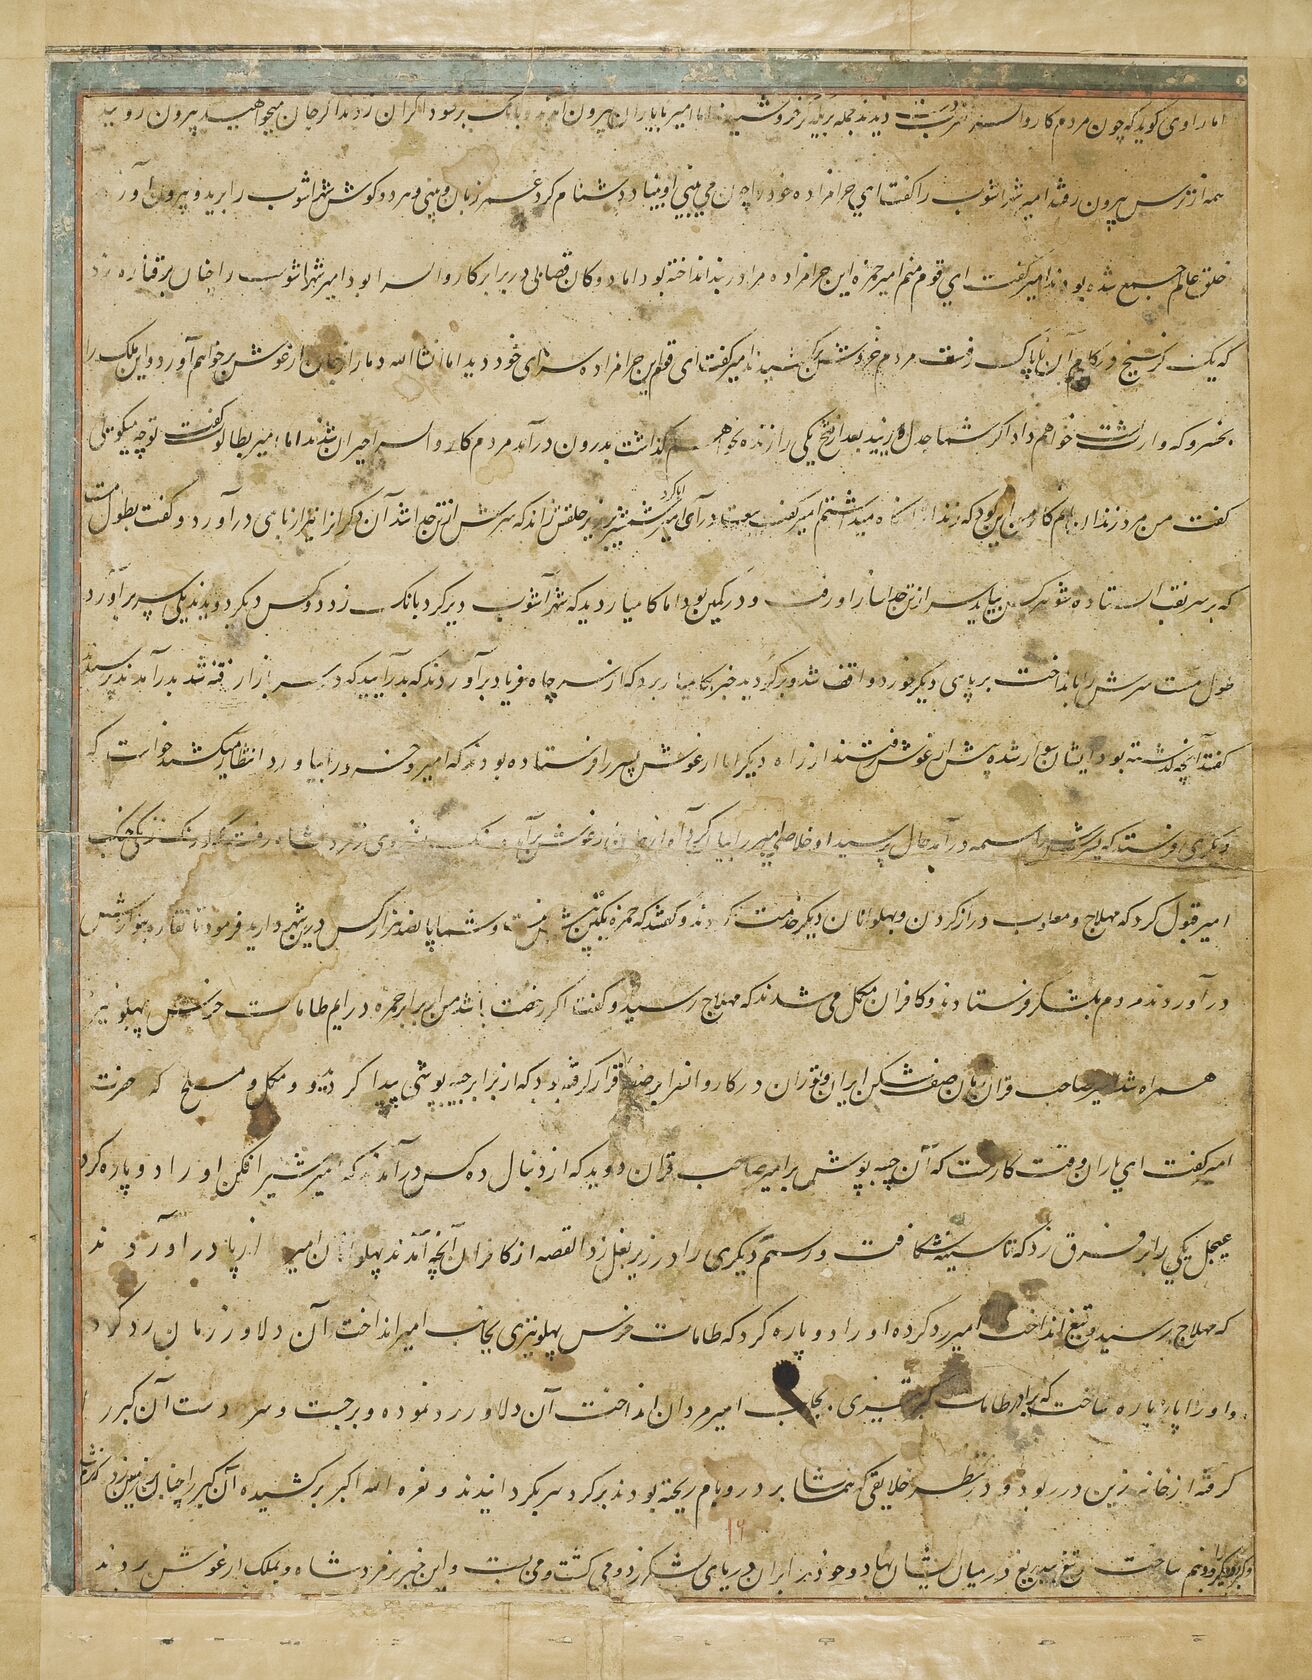 اما راوی کوید که چون مردم کاروانسرا دیدند جمله بر خروشیدند اما امیر با یاران بیرون آمد و بانک بر سوداکران زد که اگر جان میخواهید بیرون روید
همه از ترس بیرون رفتند امیر شهراشوب را کفت ای حرامزاده خود را چون می بینی او بنیاد دشنام کرد عمر زبان و بینی و هر دو کوش شهراشوب را برید و بیرون آورد
خلق عالم جمع شده بودند امیر کفت ای قوم منم امیر حمزه این حرامزاده مرا در بند انداخته بود اما دوکان قصابی در برابر کاروانسرا بود امیر شهراشوب را چنان بر قناره زد
که یک سیخ در کام آن ناپاک رفت مردم خروش بر کشیدند امیر کفت ای قوم این حرامزاده سزای خود دید اما انشاالله دمار از جان ارغوش بر خواهم آورد و این ملک را
بخسرو که وارثست خواهم داد اکر شما جدل ورزید بعد از فتح یکی را زنده نخواهم کذاشت بدرون درآمد مردم کاروانسرا حیران شدند اما امیر بطول کفت تو چه میکوئی
کفت من مرد زندان بانم کار من این بود که زندان را نکاه میداشتم امیر کفت بیعت درآی ابا کرد امیر شمشیر بر زیر حلقش راند که سرش از تن جدا شد آن دکر را نیز از پای درآورد و کفت بطول مست
که بر سر نقب استاده شو هر کس بیاید سر از تن جدا ساز او رفت و در کمین بود اما کامیار دید که شهرآشوب دیر کرد بانک زد دو کس دیکر دویدند یکی سر برآورد
طول مست سرش را بانداخت بر پای دیکر خورد واقف شد و برکردید خبر بکامیار برد که از سر چاه فریاد برآوردند که بدرآیید که در سر بازار فتنه شد بدرآمدند پرسیدند
کفتند آنچه کذشته بود ایشان سوار شده پیش ارغوش رفتند از راه دیکر اما ارغوش پسر را فرستاده بود که امیر و خسرو را بیاورد انتظار میکشید خواست که
دیکری فرستد که پسرش سراسیمه درآمد حال پرسید او خلاصی امیر را بیان کرد آه از جان ارغوش برآمد
امیر قبول کرد که مهلاج و معاوب دراز کردن و پهلوانان دیکر خدمت کردند و کفتند که حمزه یکتن بیش نیست و شما پانصد هزار کس درین شهر دارید فرمود تا نقاره بنوازش
درآوردند مردم بلشکر فرستادند و کافران مکمل می شدند که مهلاج رسید و کفت اکر رخصت باشد من برابر حمزه درایم طامات خرس پهلو نیز
همراه شد امیر صاحب قران جهان صف شکن ایران و توران در کاروانسرا بر صفه قرار کرفته بود که از برابر جیبه پوشی پیدا کردید و مکمل و مسلح که حضرت
امیر کفت ای یاران وقت کارست که آن جیبه پوش بر امیر صاحب قران دوید که از دنبال ده کس درآمدند که امیر شیر افکن او را دو پاره کرد
عیجل یکی را بر فرق زد که تا سینه شکافت و رستم دیکری را در زیر بغل زد القصه از کافران آنچه آمدند پهلوانان امیر از پا دراوردند
که مهلاج رسید و تیغ انداخت امیر رد کرده او را دو پاره کرد که طامات خرس پهلو نیزی بجانب امیر انداخت آن دلاور زمان رد کرد
و او را پاره پاره ساخت که برادر طامات کبر نیزی بجانب امیر مردان انداخت آن دلاور رد نموده و برجست و سر دست آن کبر را
کرفته از خانه زین در ربود و در نظر خلایقی که بتماشا بر در و بام ریخته بودند بر کرد سر بکردانیدند و نعره الله اکبر برکشیده آن کبر را چنان بر زمین زد که
ساخت تیغ بیدریغ در میان ایشان نهاد و خود بران دریای لشکر زد و می کشت و می بست و این خبر بر فرد شاه و بملک ارغوش بردند
۱۹